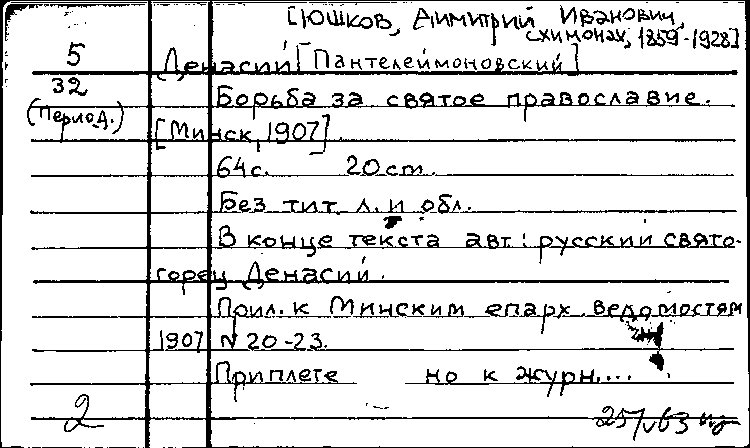 [Юшков, Димитрий Иванович,
схимонах, 1859-1928]
5
32
(Период.)
Денасий [Пантелеймоновский]
Борьба за святое православие.
[Минск, 1907].
64с. 20cm.
Без тит. л. и обл.
В конце текста авт.: русский свято-
горец Денасий.
Прил. к Минским епарх. ведомостям
1907 N 20-23.
Приплете но к журн....
2